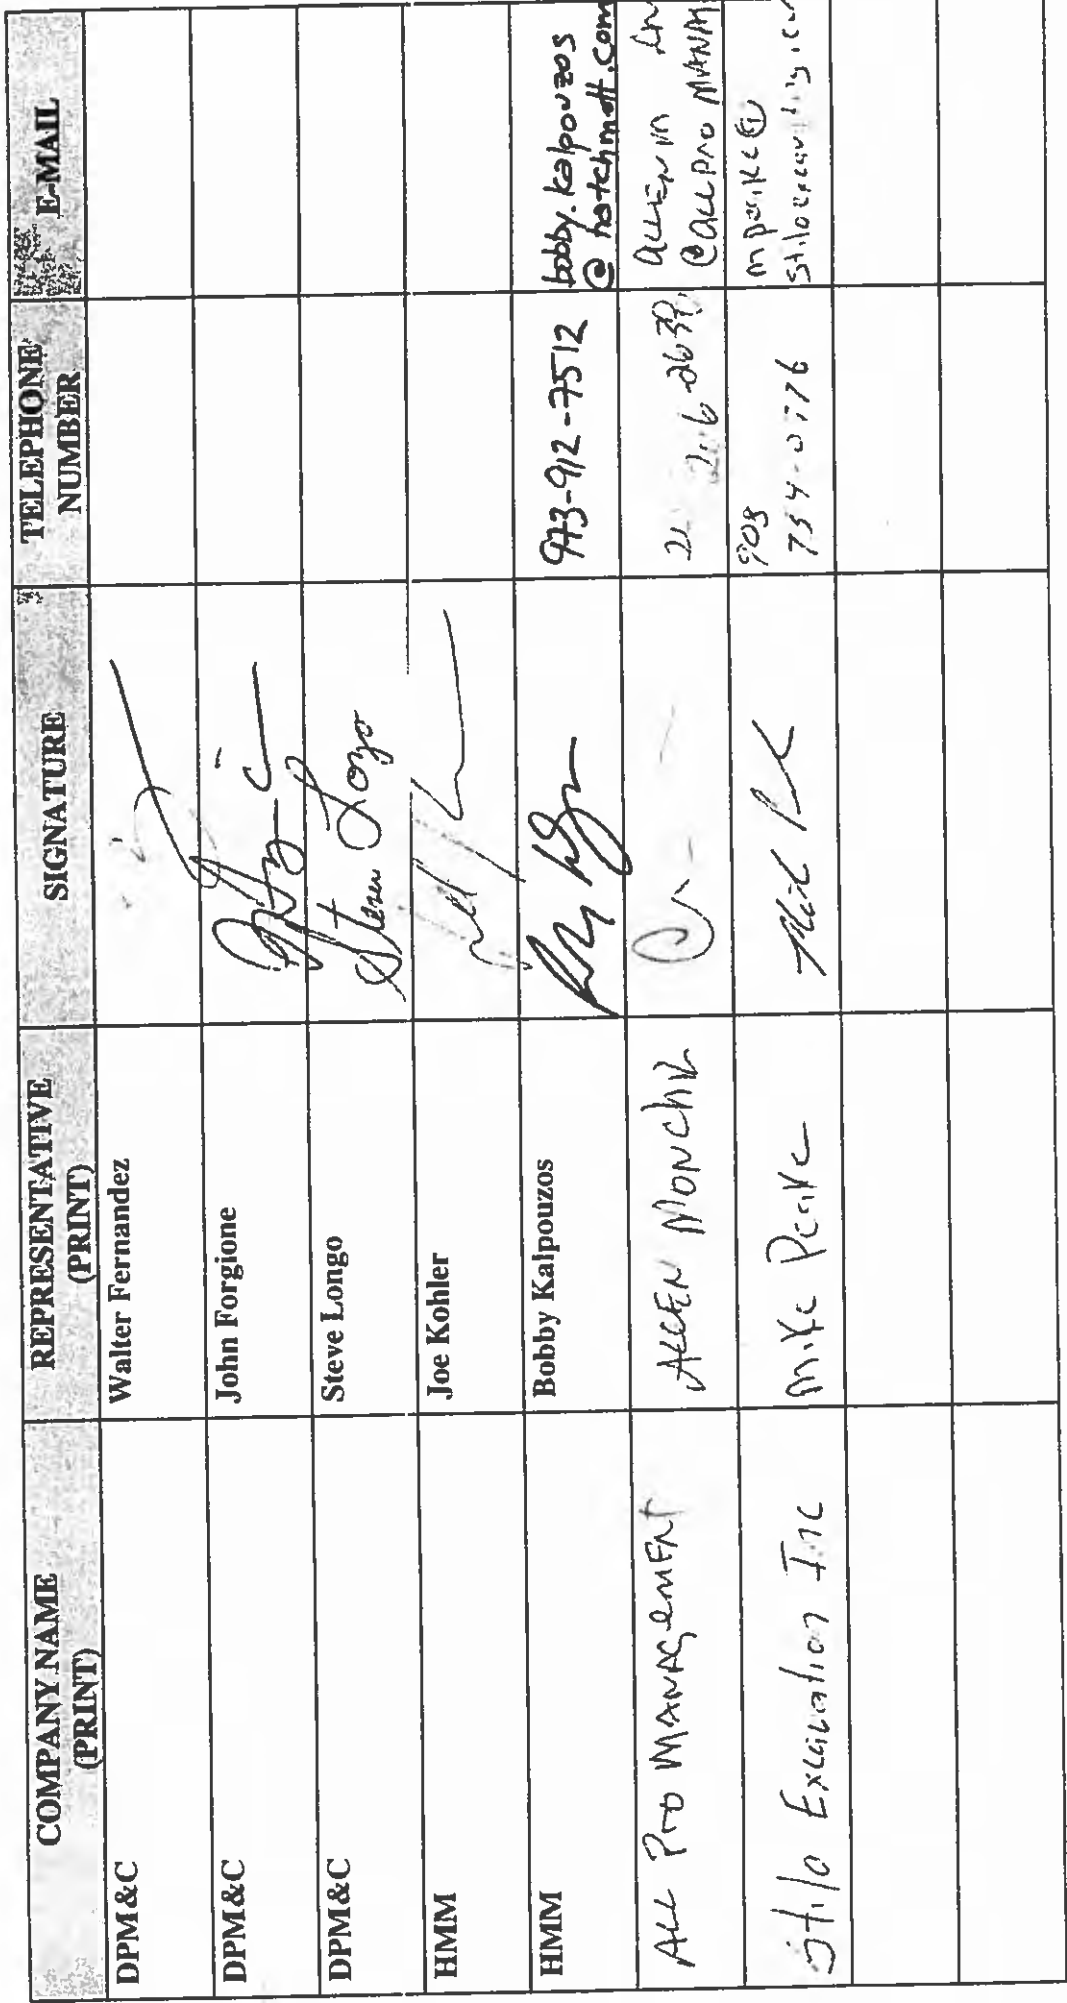 COMPANY NAME (PRINT) REPRESENTATIVE (PRINT) SIGNATURE TELEPHONE NUMBER E-MAIL
DPM&C Walter Fernandez
DPM&C John Forgione
DPM&C Steve Longo Steven Longo
HMM Joe Kohler
HMM Bobby Kalpouzos 973-912-7512 bobby.kalpouzos
@hatchmott.com
ALL Pro MANAgemENt ALLEN Monchik
@ALLPro MANAM
Stilo Excavation Inc Mike Peake 908
mpeake@